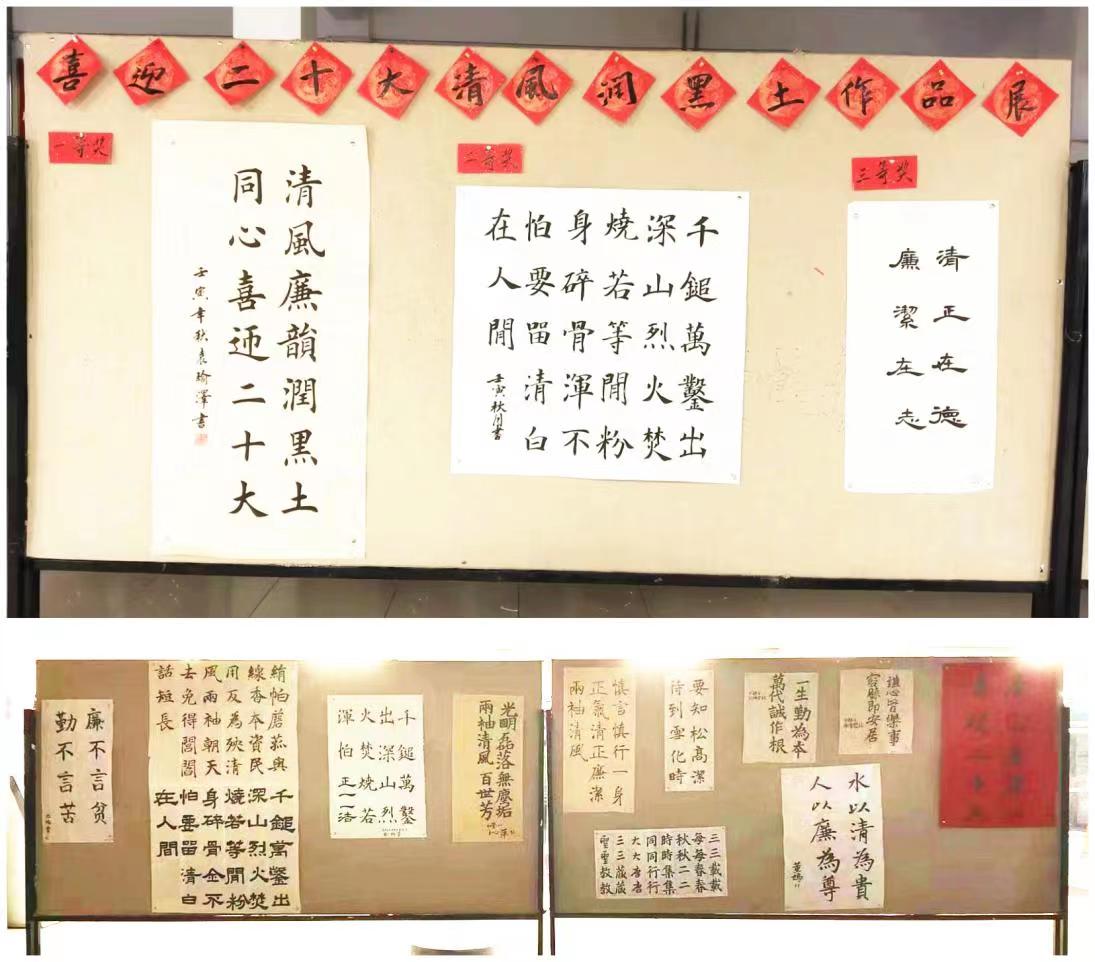 喜迎二十大清風润黑土作品展
一等奖
清風廉韻潤黑土
同心喜迎二十大
壬寅年秋袁瑜澤書
二等奖
千鎚萬鑿出
深山烈火焚
燒若等閒粉
身碎骨渾不
怕要留清白
在人閒
壬寅秋月書
三等奖
清正在德
廉潔在志
廉不言貧
勤不言苦
絹帕蘑菰與
線香本資民
用反為殃清
風兩袖朝天
去免得閭閻
話短長
千鎚萬鑿出
深山烈火焚
燒若等閒粉
身碎骨全不
怕要留清白
在人間
千鎚萬鑿
出深山烈
火焚燒若
光明磊落無塵垢
兩袖清風百世芳
慎言慎行一身
正氣清正廉潔
兩袖清風
要知松高潔
待到雪化時
一生勤為本
萬代誠作根
皆樂事
即安居
三三載載
每每春春
秋秋二二
時時集集
同同行行
大大唐唐
三三藏藏
聖聖教教
水以清為貴
人以廉為尊